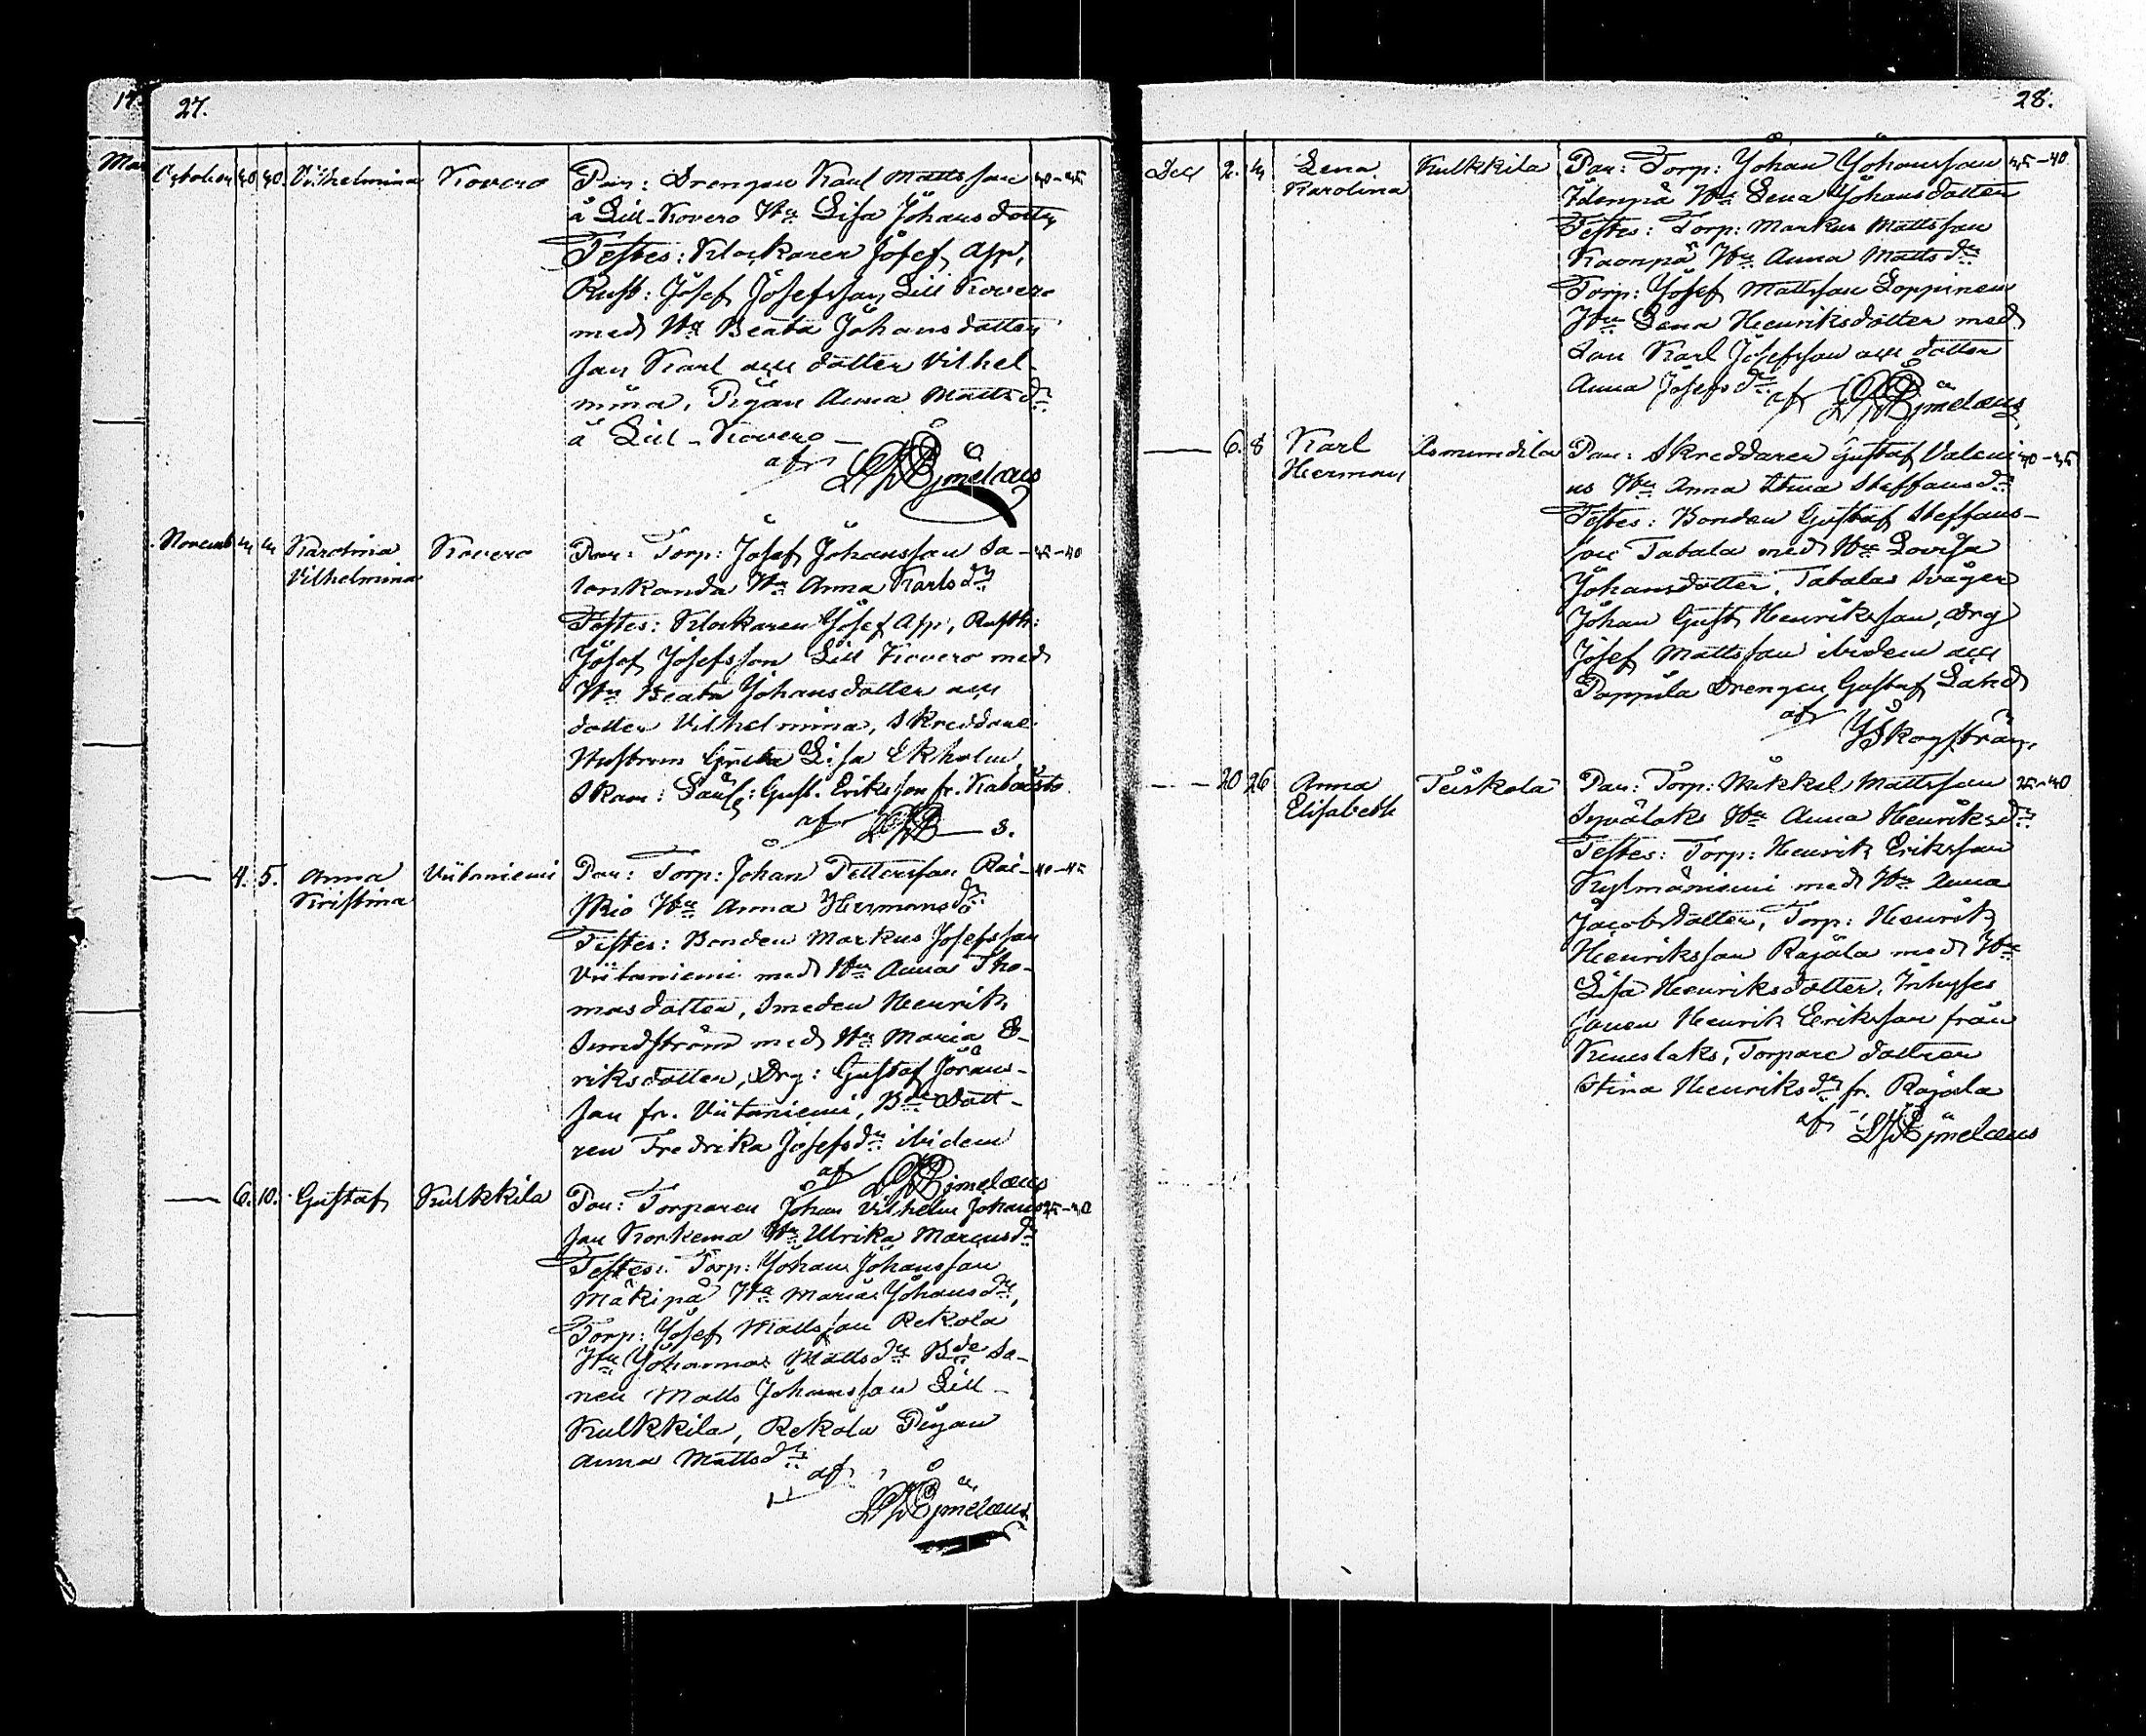 27.
October 30. 30. Vilhelmina Kovero Par: Drengen Karl Mattsson 30-35
å Lill-Kovero Hu Lisa Johansdotter
Testes: Klockaren Josef App,
Rust: Josef Josefsson Lill Kovero
med Hu Beata Johansdotter
son Karl och dotter Vilhel-
mina, Pigan Anna Mattsdr
å Lill-Kovero
af
November Karolina Vilhelmina Kovero Par: Torp: Josef Johansson Sa- 35-40
lonkanda Hu Anna Karlsdr
Testes: Klockaren Josef App, Rusth:
Josef Josefsson Lill Kovero med
Hu Beata Johansdotter och
dotter Vilhelmina, Skreddare
Hustrun Greta Lisa Ekholm
Gust. Eriksson fr.
af
4. 5. Anna Kristina Viitaniemi Par: Torp: Johan Pettersson Rai- 40-45
skio Hu Anna Hermansdr
Testes: Bonden Markus Josefsson
Viitaniemi med Hu Anna Tho-
masdotter, Smeden Henrik
Sundström med Hu Maria E-
riksdotter, Drg: Gustaf Jörans-
son fr. Viitaniemi, Bde Dott-
ren Fredrika Josefsdr ibidem
af
6. 10. Gustaf Kulkkila Par: Torparen Johan Vilhelm Johans- 25-30
son Korkema Hu Ulrika Marcusdr
Testes: Torp: Johan Johansson
Mäkipä Hu Maria Johansdr,
Torp: Josef Mattsson Rekola
Hu Johanna Mattsdr Bde So-
nen Matts Johansson Lill-
Kulkkila, Rekola Pigan
Anna Mattsdr
af
28.
Dec 2. 4 Lena Karolina Kulkkila Par: Torp: Johan Johansson 35-40
Hu Lena Johansdotter
Testes: Torp: Markus Mattsson
Kaonpä Hu Anna Mattsdr
Torp: Josef Mattsson Loppinen
Hu Lena Henriksdotter med
Son Karl Josefsson och dotter
Anna Josefsdr
af
6. 8 Karl Herman Asmundila Par: Skreddaren GustafВаleni- 30-35
us Hu Anna Stina Steffansdr
Testes: Bonden Gustaf Steffans-
son Tabala med Hu Lovisa
Johansdotter, Tabalas Svåger
Johan Gust Henriksson, Drg
Josef Mattsson ibidem och
Pappila Drengen Gustaf
af
20 26 Anna Elisabeth Teiskola Par: Torp: Mikkel Mattsson 35-40
Syvälaks Hu Anna Henriksdr
Testes: Torp: Henrik Eriksson
Kylmäniemi med Hu Anna
Jacobsdotter, Torp: Henrik
Henriksson Rajala med Hu
Lisa Henriksdotter, Inhyses
Sonen Henrik Eriksson från
Torpare dottren
Stina Henriksdr fr. Rajala
af